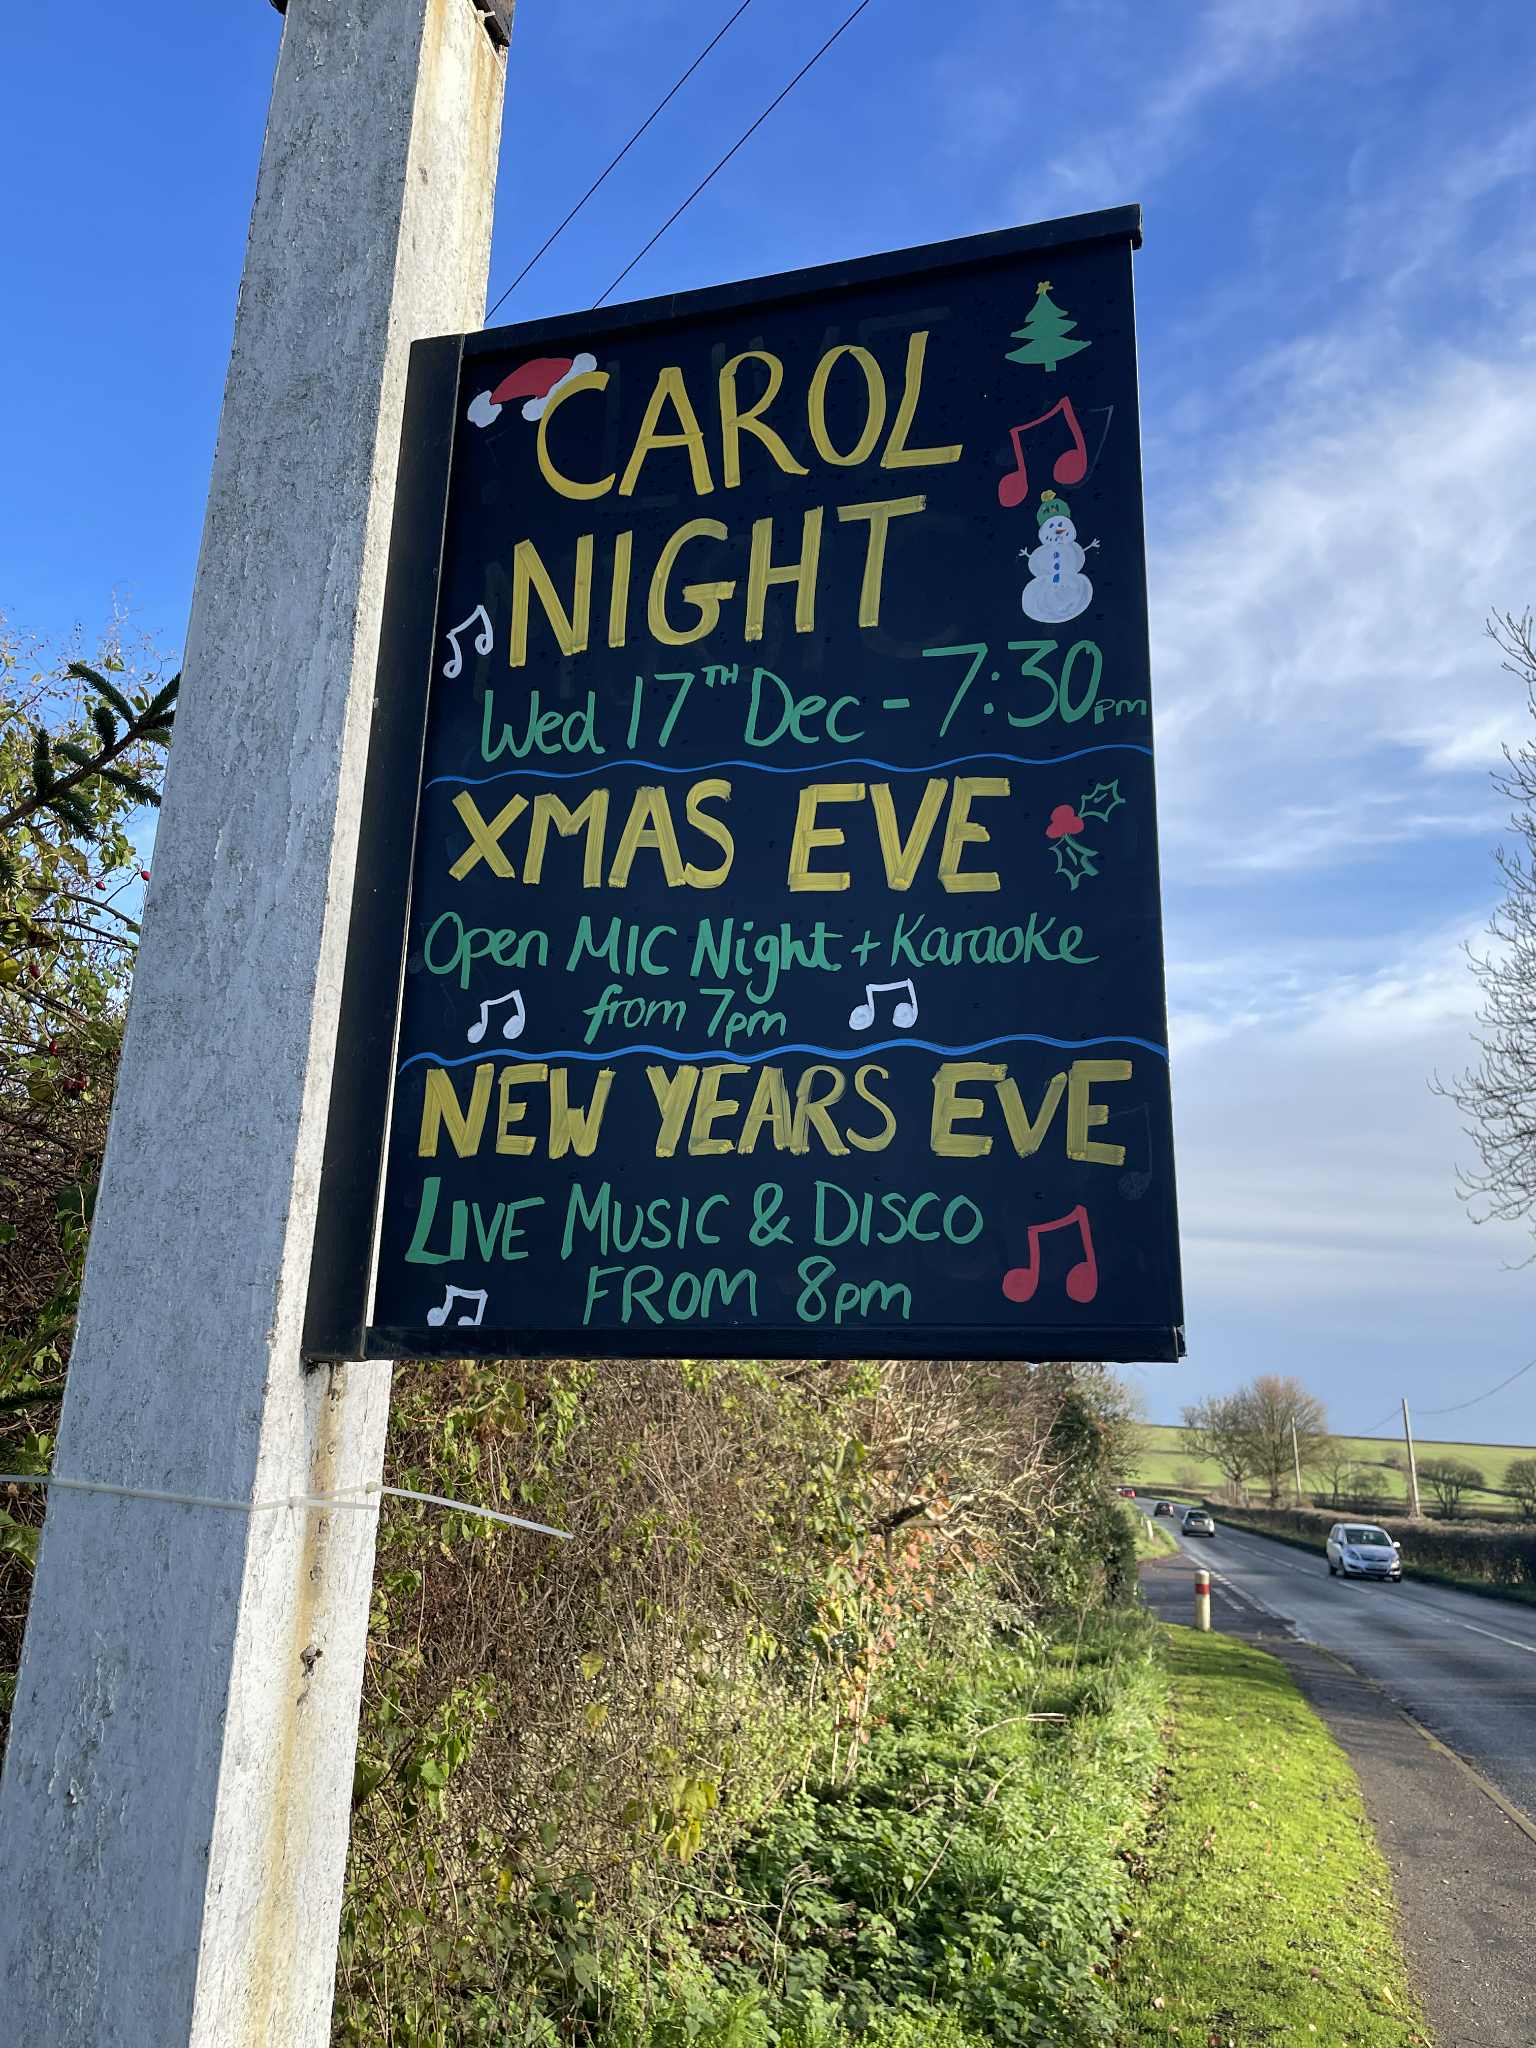 CAROL
NIGHT
Wed 17TH Dec - 7:30pm
XMAS EVE
Open MIC Night + Karaoke
from 7pm
NEW YEARS EVE
LIVE MUSIC & DISCO
FROM 8pm